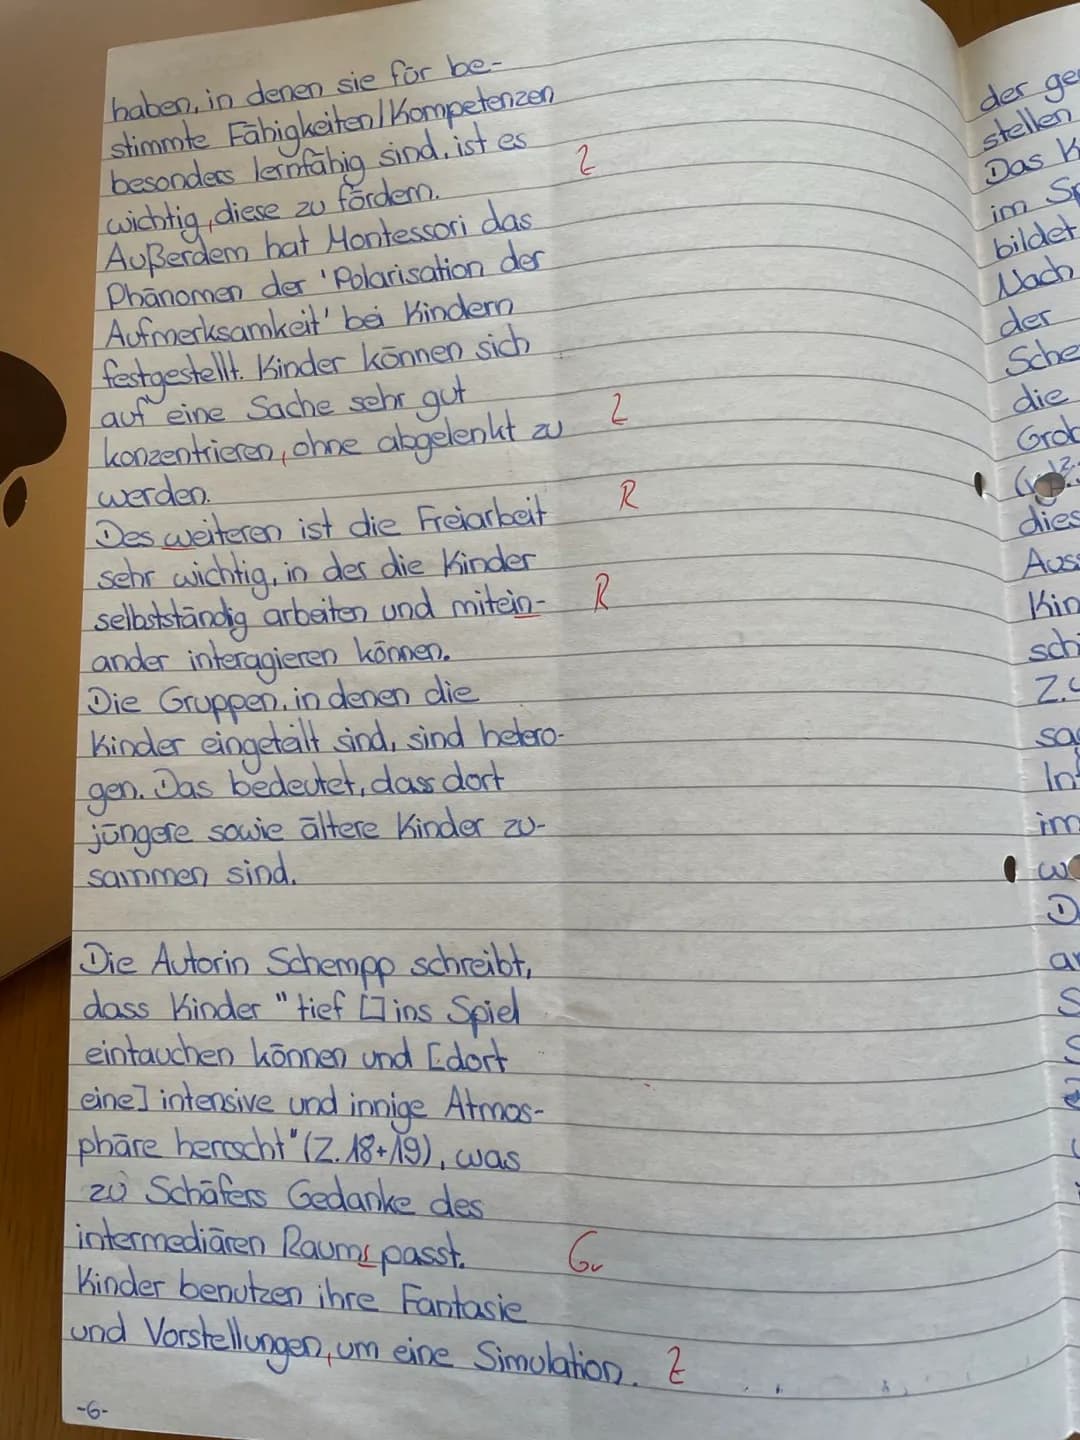 haben, in denen sie für be-
stimmte Fähigkeiten/Kompetenzen
besonders lernfähig sind, ist es
wichtig, diese zu fördern. Z
Außerdem hat Montessori das
Phänomen der 'Polarisation der
Aufmerksamkeit' bei Kindern
festgestellt. Kinder können sich
auf eine Sache sehr gut
konzentrieren, ohne abgelenkt zu Z
werden.
Des weiteren ist die Freiarbeit R
sehr wichtig, in der die Kinder
selbstständig arbeiten und mitein- R
ander interagieren können.
Die Gruppen, in denen die
Kinder eingeteilt sind, sind hetero-
gen. Das bedeutet, dass dort
jüngere sowie ältere Kinder zu-
sammen sind.
Die Autorin Schempp schreibt,
dass Kinder "tief [] ins Spiel
eintauchen können und [dort
eine] intensive und innige Atmos-
phäre herrscht" (Z. 18+19), was
zu Schäfers Gedanke des
intermediären Raums passt. Gr
Kinder benutzen ihre Fantasie
und Vorstellungen, um eine Simulation. Z
-6-
der
stellen
Das
im
bildet
Nach
der
die